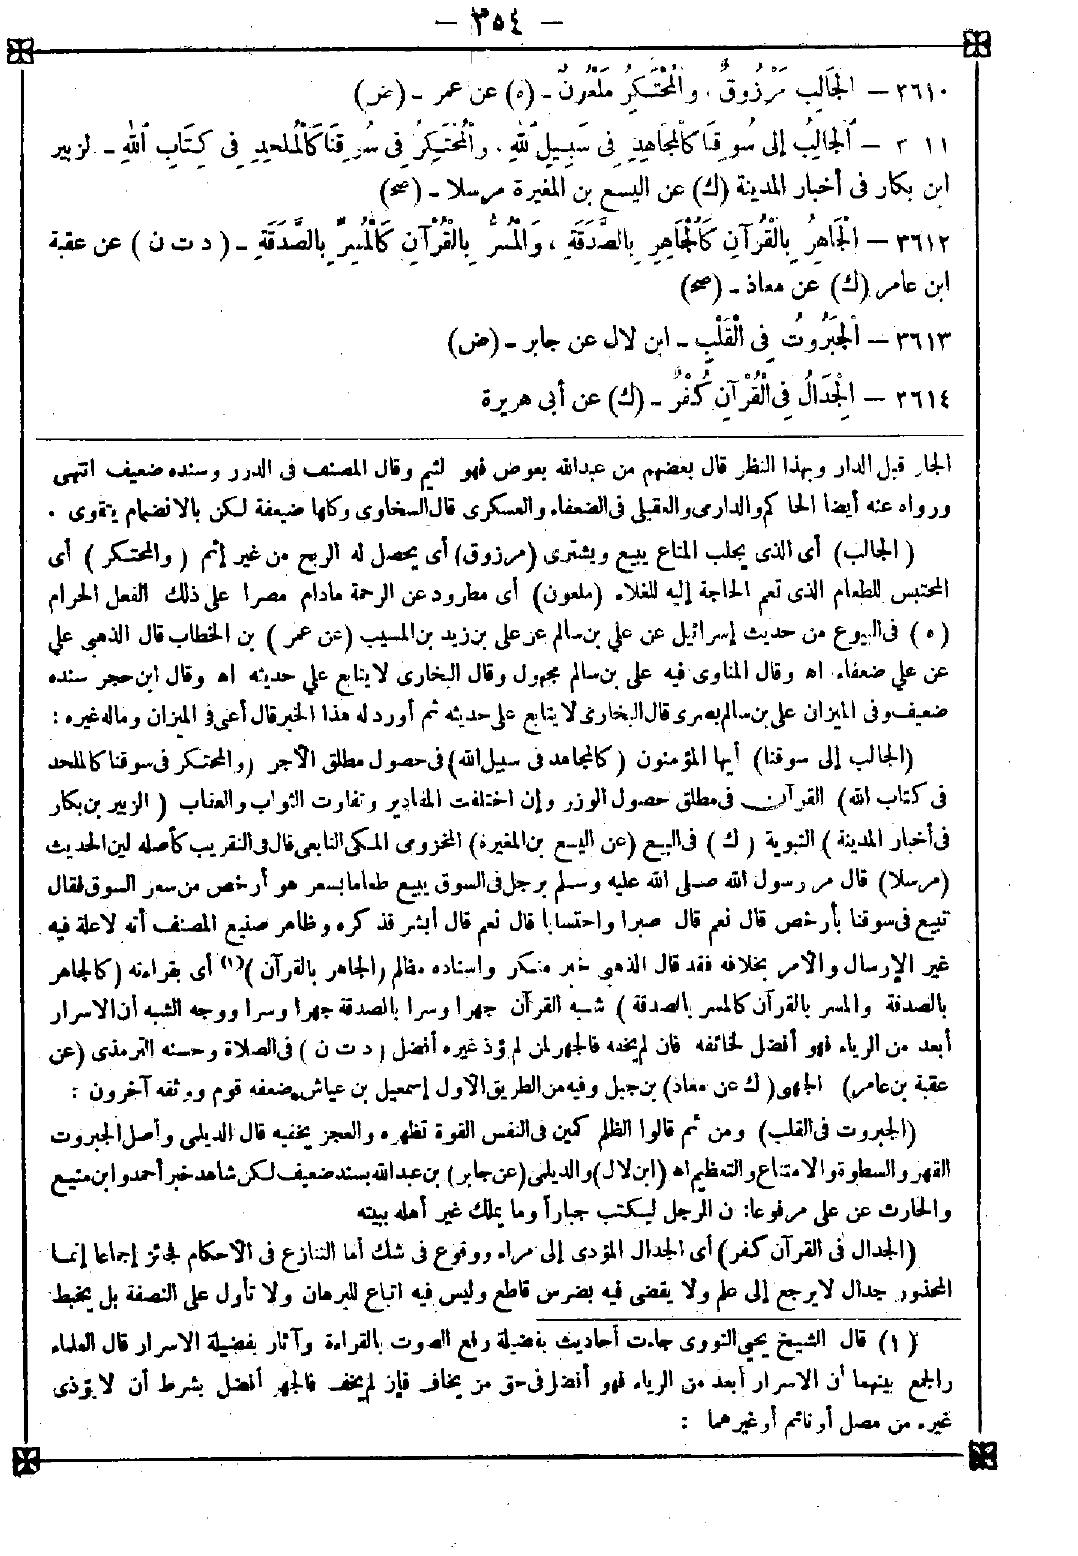 — ٣٥٤ —
٣٦١٠ — الْجَالِبُ مَرْزُوقٌ ، وَالْمُحْتَكِرُ مَلْعُونٌ - (ه) عن عمر - (ض)
٣٦١١ — اَلْجَالِبُ إِلَى سُوقِنَا كَالْمُجَاهِدِ فِى سَبِيلِ اللهِ ، وَالْمُحْتَكِرُ فِى سُوقِنَا كَالْمُلْحِدِ فِى كِتَابِ اللهِ - لزبير
ابن بكار فى أخبار المدينة (ك) عن اليسع بن المغيرة مرسلا - (صح)
٣٦١٢ — الْجَاهِرُ بِالْقُرْآنِ كَالْجَاهِرِ بِالصَّدَقَةِ ، وَالْمُسِرُّ بِالْقُرْآنِ كَالْمُسِرِّ بِالصَّدَقَةِ - ( د ت ن ) عن عقبة
ابن عامر (ك) عن معاذ - (صح)
٣٦١٣ — الْجَبَرُوتُ فِى الْقَلْبِ - ابن لال عن جابر - (ض)
٣٦١٤ — الْجِدَالُ فِى الْقُرْآنِ كُفْرٌ - (ك) عن أبى هريرة
الجار قبل الدار وبهذا النظر قال بعضهم من عبدالله بعوض فهو لئيم وقال المصنف فى الدرر وسنده ضعيف انتهى
ورواه عنه أيضا الحاكم والدارمى والعقيلى فى الضعفاء والعسكرى قال السخاوى وكلها ضعيفة لكن بالانضمام يتقوى .
( الجالب) أى الذى يجلب المتاع يبيع ويشترى (مرزوق) أى يحصل له الربح من غير إثم ( والمحتكر ) أى
المحتبس للطعام الذى تعم الحاجة إليه للغلاء (ملعون) أى مطرود عن الرحمة مادام مصرا على ذلك الفعل الحرام
(ه) فى البيوع من حديث إسرائيل عن على بن سالم عن على بن زيد بن المسيب (عن عمر ) بن الخطاب قال الذهبى على
عن على ضعفاء اه وقال المناوى فيه على بن سالم مجهول وقال البخارى لا يتابع على حديثه اه وقال ابن حجر سنده
ضعيف وفى الميزان على بن سالم بصرى قال البخارى لا يتابع على حديثه ثم أورد له هذا الخبر قال أعنى فى الميزان وماله غيره :
(الجالب إلى سوقنا) أيها المؤمنون (كالمجاهد فى سبيل الله) فى حصول مطلق الأجر (والمحتكر فى سوقنا كالملحد
فى كتاب الله) القرآن فى مطلق حصول الوزر وإن اختلفت المقادير وتفاوت الثواب والعقاب ( الزبير بن بكار
فى أخبار المدينة ) النبوية ( ك ) فى البيع (عن اليسع بن المغيرة) المخزومى المكى التابعى قال فى التقريب كأصله لين الحديث
(مرسلا) قال مر رسول الله صلى الله عليه وسلم برجل فى السوق يبيع طعاما بسعر هو أرخص من سعر السوق فقال
تبيع فى سوقنا بأرخص قال نعم قال صبرا واحتسابا قال نعم قال أبشر فذكره وظاهر صنيع المصنف أنه لا علة فيه
غير الإرسال والأمر بخلافه فقد قال الذهبى خبر منكر وإسناده مظلم (الجاهر بالقرآن )(١) أى بقراءته (كالجاهر
بالصدقة والمسر بالقرآن كالمسر بالصدقة ) شبه القرآن جهرا وسرا بالصدقة جهرا وسرا ووجه الشبه أن الاسرار
أبعد من الرياء فهو أفضل لخائفه فان لم يخفه فالجهر لمن لم يؤذ غيره أفضل ( د ت ن ) فى الصلاة وحسنه الترمذى (عن
عقبة بن عامر) الجهنى ( ك عن معاذ) بن جبل وفيه من الطريق الأول إسمعيل بن عياش ضعفه قوم ووثقه آخرون :
(الجبروت فى القلب) ومن ثم قالوا الظلم كمين فى النفس القوة تظهره والعجز يخفيه قال الديلمى وأصل الجبروت
القهر والسطوة والامتناع والتعظيم اه (ابن لال) والديلمى (عن جابر) بن عبدالله بسند ضعيف لكن شاهد خبر أحمد وابن منيع
والحارث عن على مرفوعا: ن الرجل ليكتب جباراً وما يملك غير أهله بيته
(الجدال فى القرآن كفر) أى الجدال المؤدى إلى مراء ووقوع فى شك أما التنازع فى الأحكام لجائز إجماعا إنما
المحذور جدال لا يرجع إلى علم ولا يقضى فيه بضرس قاطع وليس فيه اتباع للبرهان ولا تأول على النصفة بل يخبط
(١) قال الشيخ يحيى النووى جاءت أحاديث بفضيلة رفع الصوت بالقراءة وآثار بفضيلة الاسرار قال العلماء
والجمع بينهما أن الاسرار أبعد من الرياء فهو أفضل فى حق من يخاف فإن لم يخف فالجهر أفضل بشرط أن لا يؤذى
غيره من مصل أو نائم أو غيرهما :